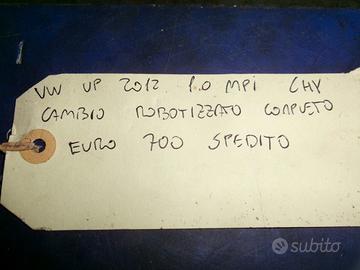 VW UP 2012 1.0 MPI CHY
CAMBIO ROBOTIZZATO COMPLETO
EURO 700 SPEDITO
subito